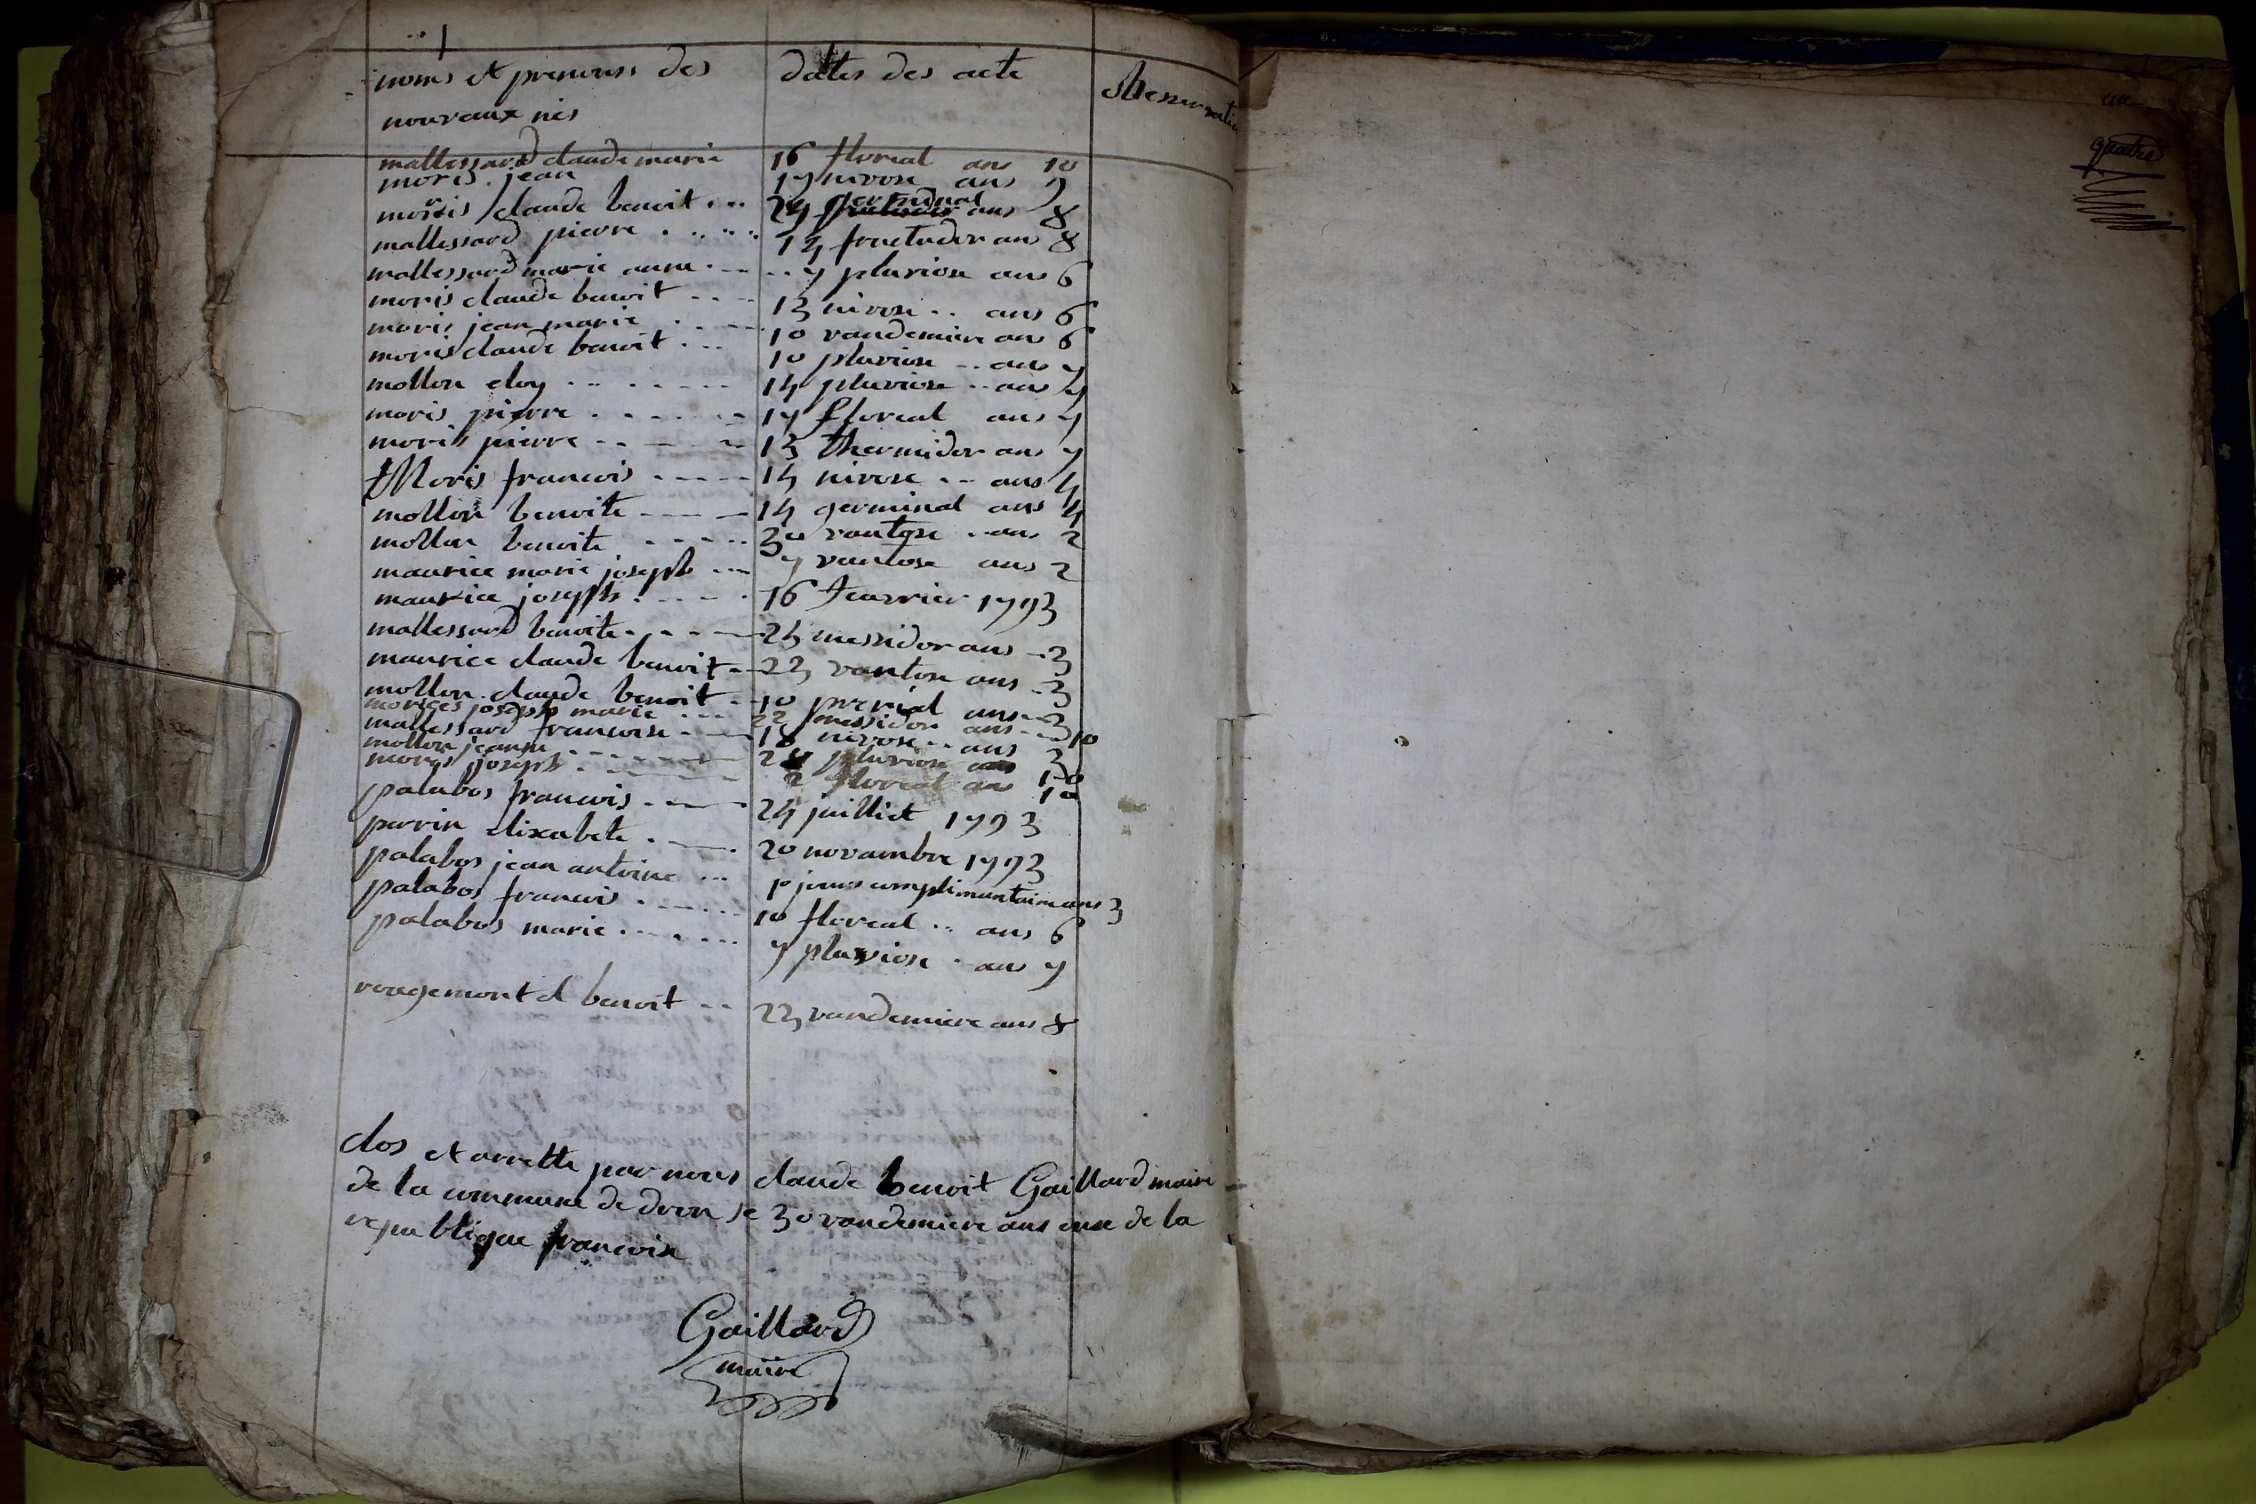 noms et prenoms des dates des acte observation
nouveaux nés
mallessard claude marie 16 floreal ans 10
moris jean 17 nivose ans 9
morris claude benoit 24 germinal ans 8
mallessard pierre 14 fructudor ans 8
mallessard marie anne 7 pluviose ans 6
moris claude benoit 13 nivose ans 6
moris jean marie 10 vandemiere ans 6
moris claude benoit 10 pluviose ans 7
mollon eloy 14 pluviose ans 7
moris pierre 17 floreal ans 7
moris pierre 13 thermidor ans 7
Moris francois 14 nivose ans 4
mollon benoite 14 germinal ans 4
mollon benoite 30 vantose ans 2
maurice marie joseph 7 vantose ans 2
maurice joseph 16 feavrier 1793
mallessard benoite 24 messidor ans 3
maurice claude benoit 23 vantose ans 3
mollon claude benoit 10 prerial ans 3
morices joseph marie 22 messidor ans 10
mallessard francoise 18 nivose ans 3
mollon jeanne pluviose ans 10
moris joseph 2 floreal ans 10
palabos francois 24 juilliet 1793
perrin elizabete 20 novambre 1793
palabos jean antoine jours complimantaire ans 3
palabos francois 10 floreal ans 6
palabos marie 7 pluviose ans 7
rougemont cl benoit 23 vandemiere ans 8
clos et arrette par nous claude benoit Gaillard maire
de la commune de drom le 30 vandemiere ans onse de la
republique francoise
Gaillard
maire
quatre